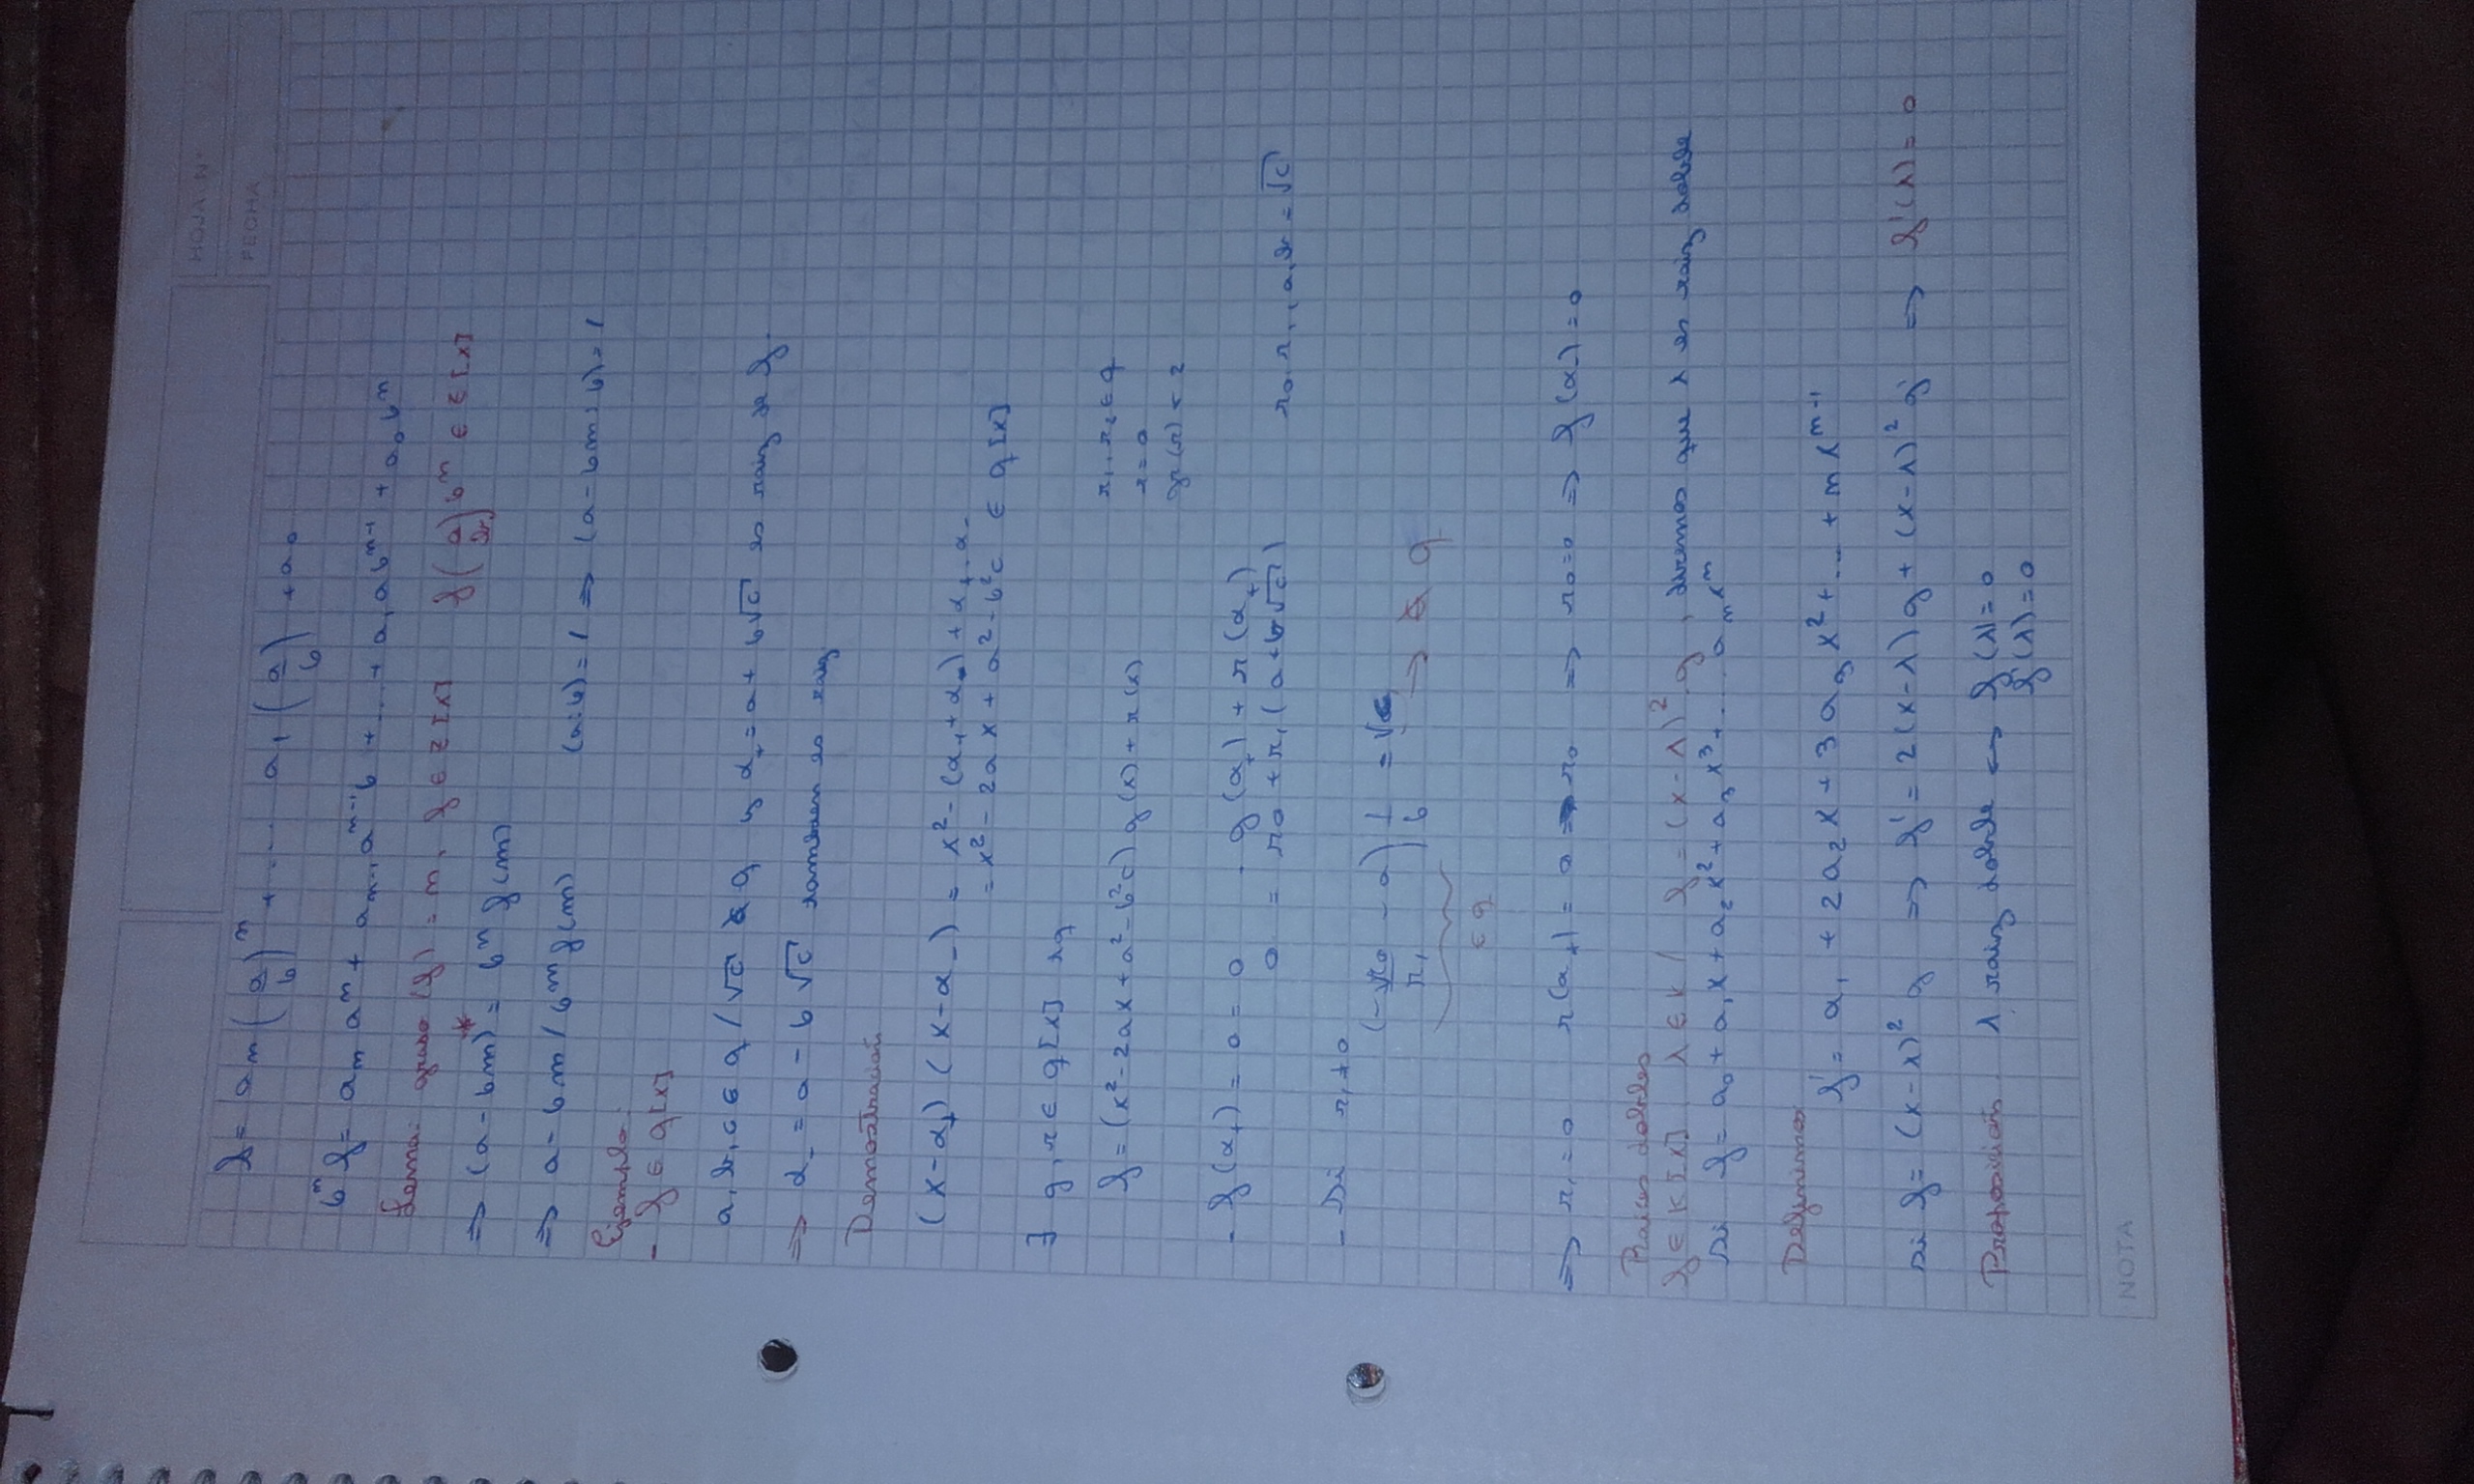 HOJA N°
FECHA
f = a_n (a/b)^n + .... a_1 (a/b) + a_0
b^n f = a_n a^n + a_{n-1} a^{n-1} b + ... + a_1 a b^{n-1} + a_0 b^n
Lema: grado (f) = n, f ∈ Z[x] f(a/b) b^n ∈ Z[x]
⇒ (a - bm)* = b^n f(m)
⇒ a - bm / b^n f(m) (a:b) = 1 ⇒ (a - bm : b) = 1
Ejemplo:
- f ∈ q[x]
a, b, c ∈ q / √c ∉ q y α_+ = a + b√c es raiz de f.
⇒ α_- = a - b √c tambien es raiz
Demostración
(x - α_+) (x - α_-) = x² - (α_+ + α_-) + α_+ . α_-
= x² - 2a x + a² - b²c ∈ q[x]
∃ g, r ∈ q[x] tq
f = (x² - 2ax + a² - b²c) g(x) + r(x)
r_1, r_2 ∈ q
r = 0
gr(r) < 2
- f(α_+) = 0 = 0 . g(α_+) + r(α_+)
0 = r_0 + r_1 (a + b√c) r_0, r_1, a, b = √c
- Si r_1 ≠ 0
(-r_0/r_1 - a) 1/b = √c → ∉ q
∈ q
⇒ r_1 = 0 r(α_+) = 0 = r_0 ⇒ r_0 = 0 ⇒ f(α_-) = 0
Raices dobles
f ∈ K[x] λ ∈ K / f = (x - λ)² g, diremos que λ es raiz doble
Si f = a_0 + a_1 x + a_2 x² + a_3 x³ + ... a_n x^n
Definimos
f' = a_1 + 2 a_2 x + 3 a_3 x² + ... + n x^{n-1}
si f = (x - λ)² g ⇒ f' = 2(x - λ) g + (x - λ)² g' ⇒ f'(λ) = 0
Proposición λ raiz doble ⇔ f(λ) = 0
f'(λ) = 0
NOTA